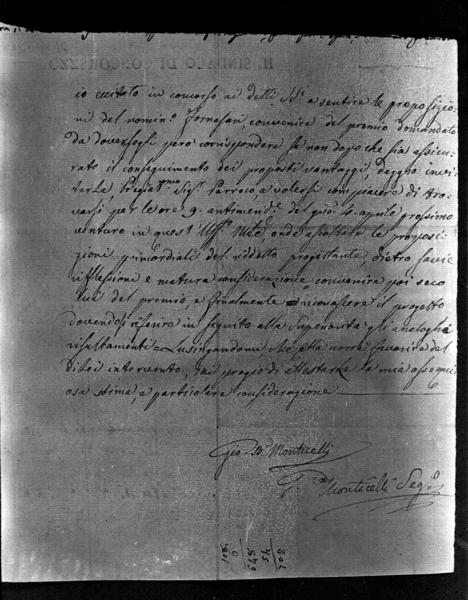 IL SINDACO DI CONCOREZZO
io eccitato in concorso ai detti SS.i a sentire le proposizio-
ni del nomin.o Fornasari, convenire del premio domandato
da doversegli però corrispondere se non dopo che sia assicu-
rato il conseguimento dei proposti vantaggi, Deggio invi-
tarLa Pregiat.mo Sig.r Parroco, a volersi compiacere di tro-
varsi per le ore 9. antimerid.e del gno 4. aprile prossimo
venturo in quest'Uff.o onde ascoltate le proposi-
zioni primordiali del suddetto progettante, dietro savie
riflessioni e matura considerazione convenire poi seco
lui del premio, e finalmente riconoscere il progetto
dovendosi riferire in seguito alla Superiorità gli analoghi
risultamenti. Lusingandomi favorita del
di Lei intervento, pregio di attestarLe la mia ossequi-
osa stima, e particolare considerazione
Gio. B.a Monticelli
Monticelli Seg.o
108
0
648
54
702